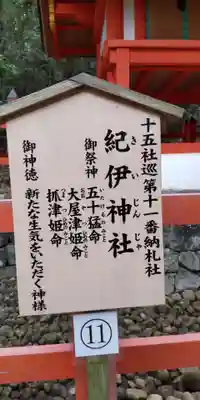 十五社巡第十一番納札社
紀伊神社
きいじんじゃ
御祭神
五十猛命
いたけるのみこと
大屋津姫命
抓津姫命
御神徳
新たな生気をいただく神様
⑪